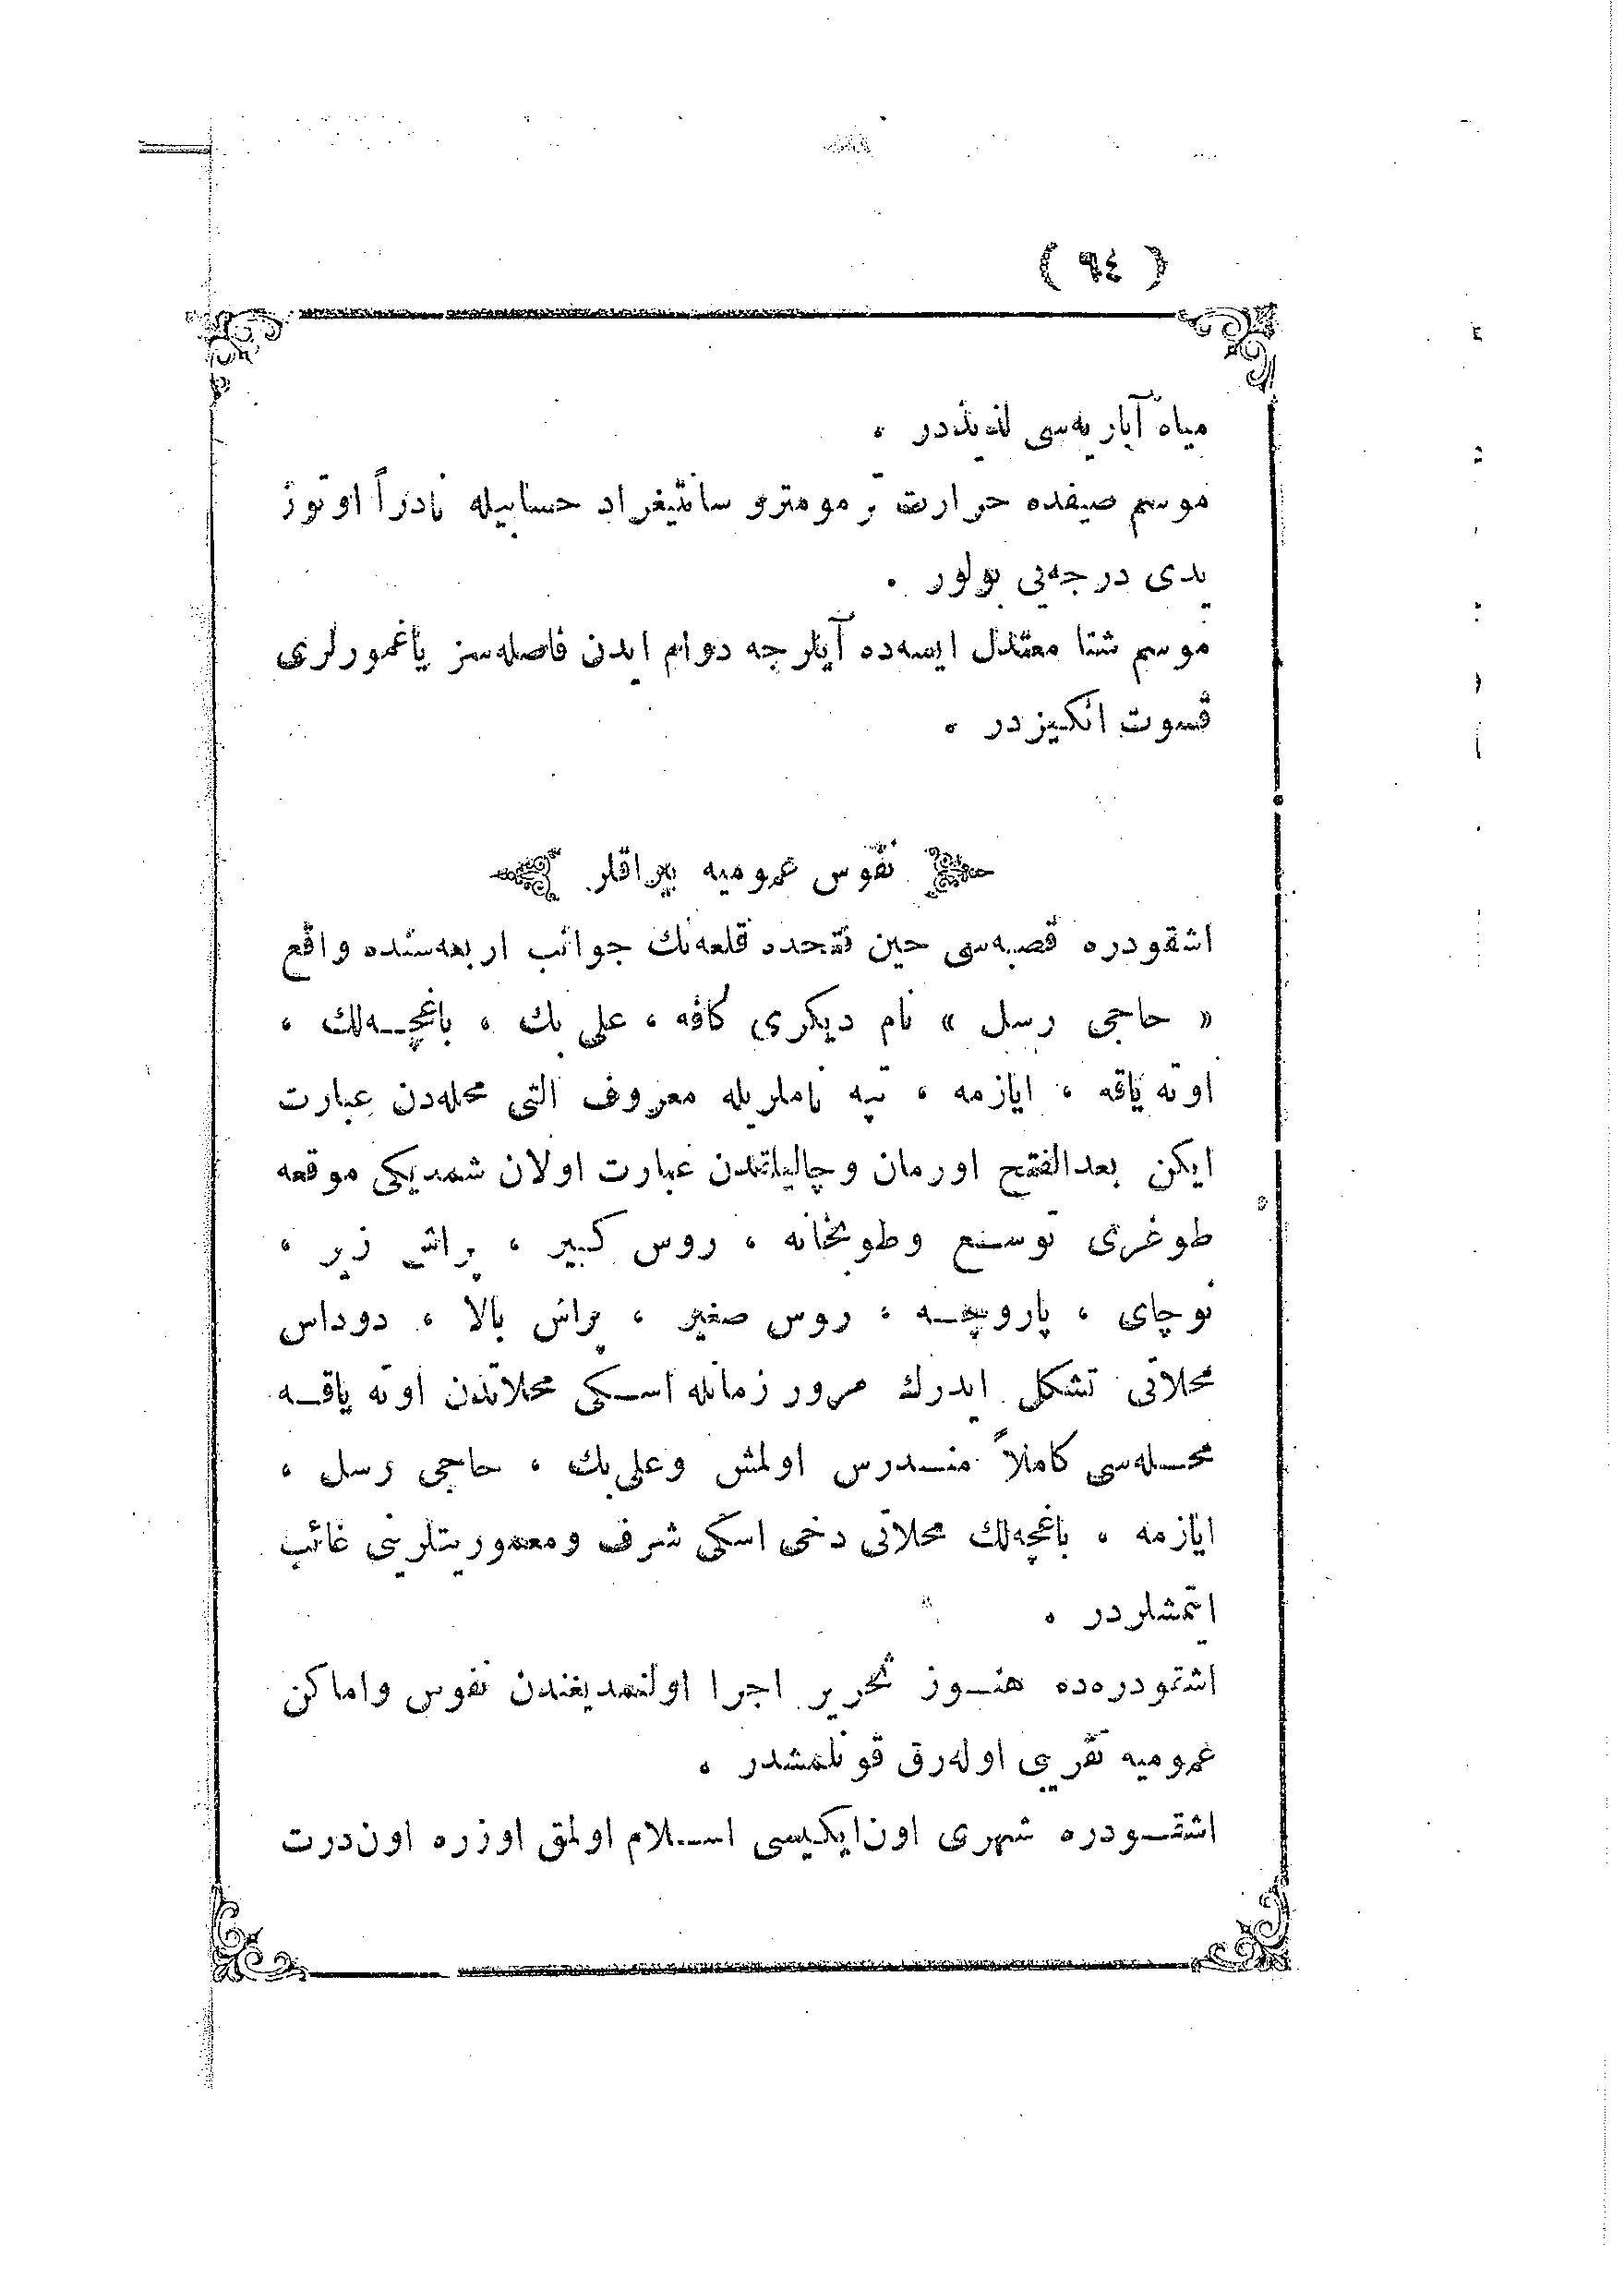 ( ٩٤ )
میاه آباریه‌سی لذیذدر .
موسم صیفده حرارت ترمومترو سانتیغراد حسابیله نادراً اوتوز
یدی درجه‌یی بولور .
موسم شتا معتدل ایسه‌ده آیلرجه دوام ایدن فاصله‌سز یاغمورلری
قسوت انکیزدر .
نفوس عمومیه بیراقلر
اشقودره قصبه‌سی حین فتحده قلعه‌نك جوانب اربعه‌سنده واقع
« حاجی رسل » نام دیکری کافه ، علی بك ، باغچــه‌لك ،
اوته یاقه ، ایازمه ، تپه ناملریله معروف التی محله‌دن عبارت
ایکن بعدالفتح اورمان وچالیلقدن عبارت اولان شمدیکی موقعه
طوغری توسـع وطوبخانه ، روس کبیر ، پراش زیر ،
نوچای ، پاروپچــه ، روس صغیر ، پراش بالا ، دوداس
محلاتی تشکل ایدرك مرور زمانله اسـکی محلاتدن اوته یاقــه
محـله‌سی کاملاً منـدرس اولمش وعلی‌بك ، حاجی رسل ،
ایازمه ، باغچه‌لك محلاتی دخی اسکی شرف ومعموریتلرینی غائب
ایتمشلردر .
اشقودره‌ده هنـوز تحریر اجرا اولنمدیغندن نفوس واماکن
عمومیه تقریبی اوله‌رق قونلمشدر .
اشقــودره شهری اون‌ایکیسی اسـلام اولمق اوزره اون‌درت